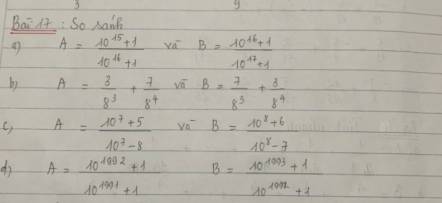 3 9
Bài 17 : So sánh
a) A = \frac{10^{15}+1}{10^{16}+1} và B = \frac{10^{16}+1}{10^{17}+1}
b) A = \frac{3}{8^3} + \frac{7}{8^4} và B = \frac{7}{8^3} + \frac{3}{8^4}
c) A = \frac{10^7+5}{10^7-8} và B = \frac{10^8+6}{10^8-7}
d) A = \frac{10^{1992}+1}{10^{1991}+1} B = \frac{10^{1993}+1}{10^{1992}+1}